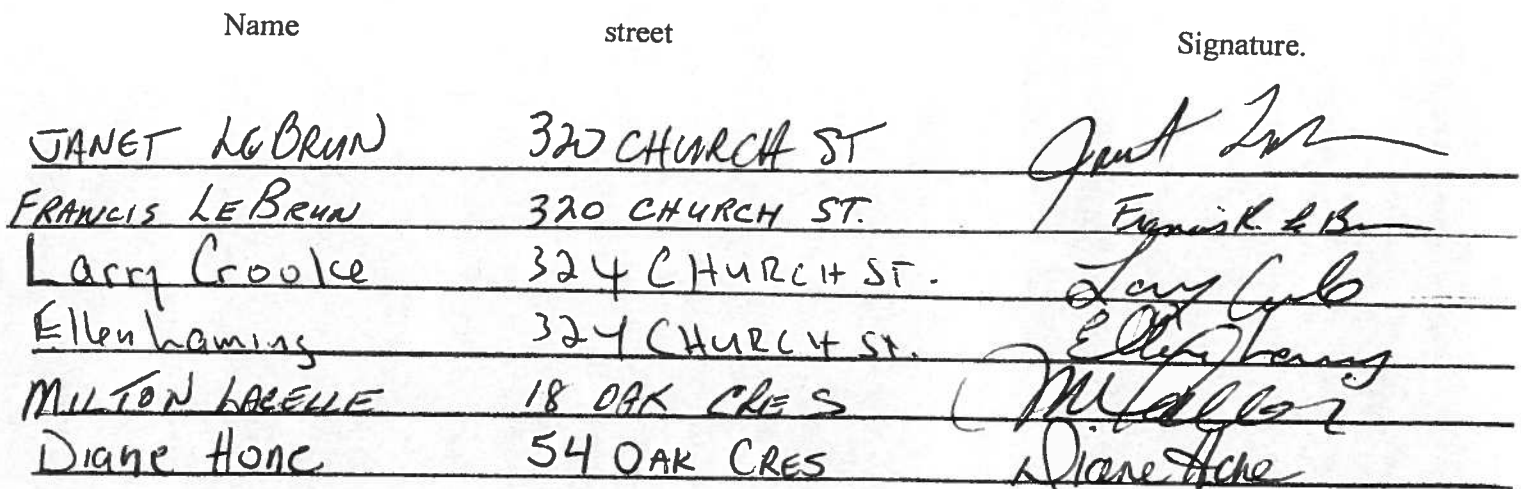 Name street Signature.
JANET LeBRUN 320 CHURCH ST
FRANCIS LEBRUN 320 CHURCH ST. Francis R. Le Brun
Larry Crooke 324 CHURCH ST.
Ellen Laming 324 CHURCH ST. Ellen Laming
MILTON LACELLE 18 OAK CRES
Diane Hone 54 OAK CRES Diane Hone